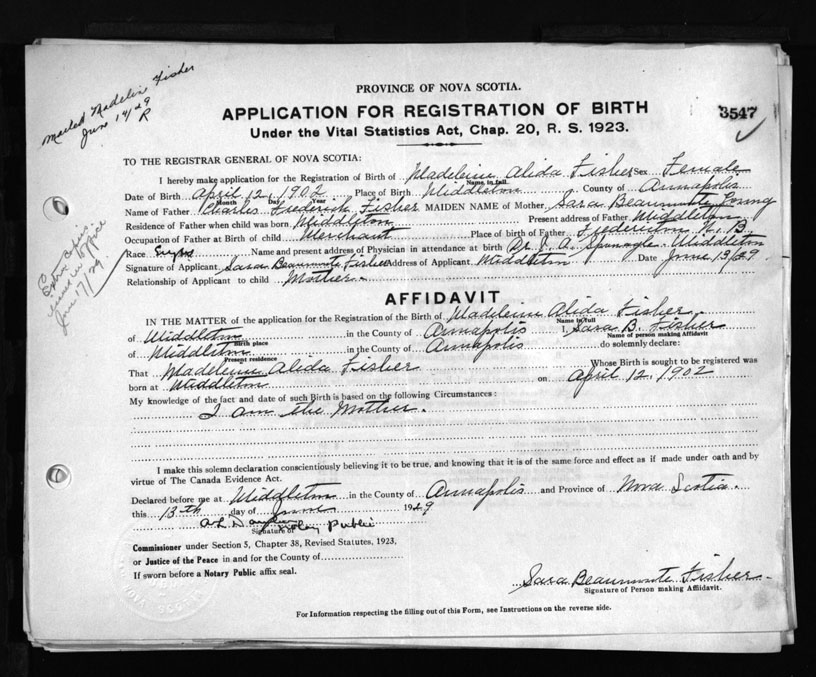 Mailed Madelin Fisher
June 14/29
R
PROVINCE OF NOVA SCOTIA.
APPLICATION FOR REGISTRATION OF BIRTH
3547
Under the Vital Statistics Act, Chap. 20, R. S. 1923.
TO THE REGISTRAR GENERAL OF NOVA SCOTIA:
I hereby make application for the Registration of Birth of Madeleine Alida Fisher Sex Female
Name in full
Date of Birth April 12, 1902 Place of Birth Middleton County of Annapolis
Month Day Year
Name of Father Charles Frederick Fisher MAIDEN NAME of Mother Sara Beaumonte Young
Residence of Father when child was born Middleton Present address of Father Middleton
Occupation of Father at Birth of child Merchant Place of birth of Father Fredericton N. B.
Race Name and present address of Physician in attendance at birth Dr. A. Middleton
Signature of Applicant Sara Beaumonte Fisher Address of Applicant Middleton Date June 13/29
Relationship of Applicant to child Mother.
Extra Copy
office
June 17/29
AFFIDAVIT
IN THE MATTER of the application for the Registration of the Birth of Madeleine Alida Fisher
Name in full
of Middleton in the County of Annapolis I, Sara B. Fisher
Birth place Name of person making Affidavit
of Middleton in the County of Annapolis do solemnly declare:
Present residence
That Madeleine Alida Fisher Whose Birth is sought to be registered was
born at Middleton on April 12, 1902
My knowledge of the fact and date of such Birth is based on the following Circumstances:
I am the Mother.
I make this solemn declaration conscientiously believing it to be true, and knowing that it is of the same force and effect as if made under oath and by
virtue of The Canada Evidence Act.
Declared before me at Middleton in the County of Annapolis and Province of Nova Scotia
this 13th day of June 1929
Notary Public
Signature of
Commissioner under Section 5, Chapter 38, Revised Statutes, 1923,
or Justice of the Peace in and for the County of
If sworn before a Notary Public affix seal.
Sara Beaumonte Fisher
Signature of Person making Affidavit.
For Information respecting the filling out of this Form, see Instructions on the reverse side.